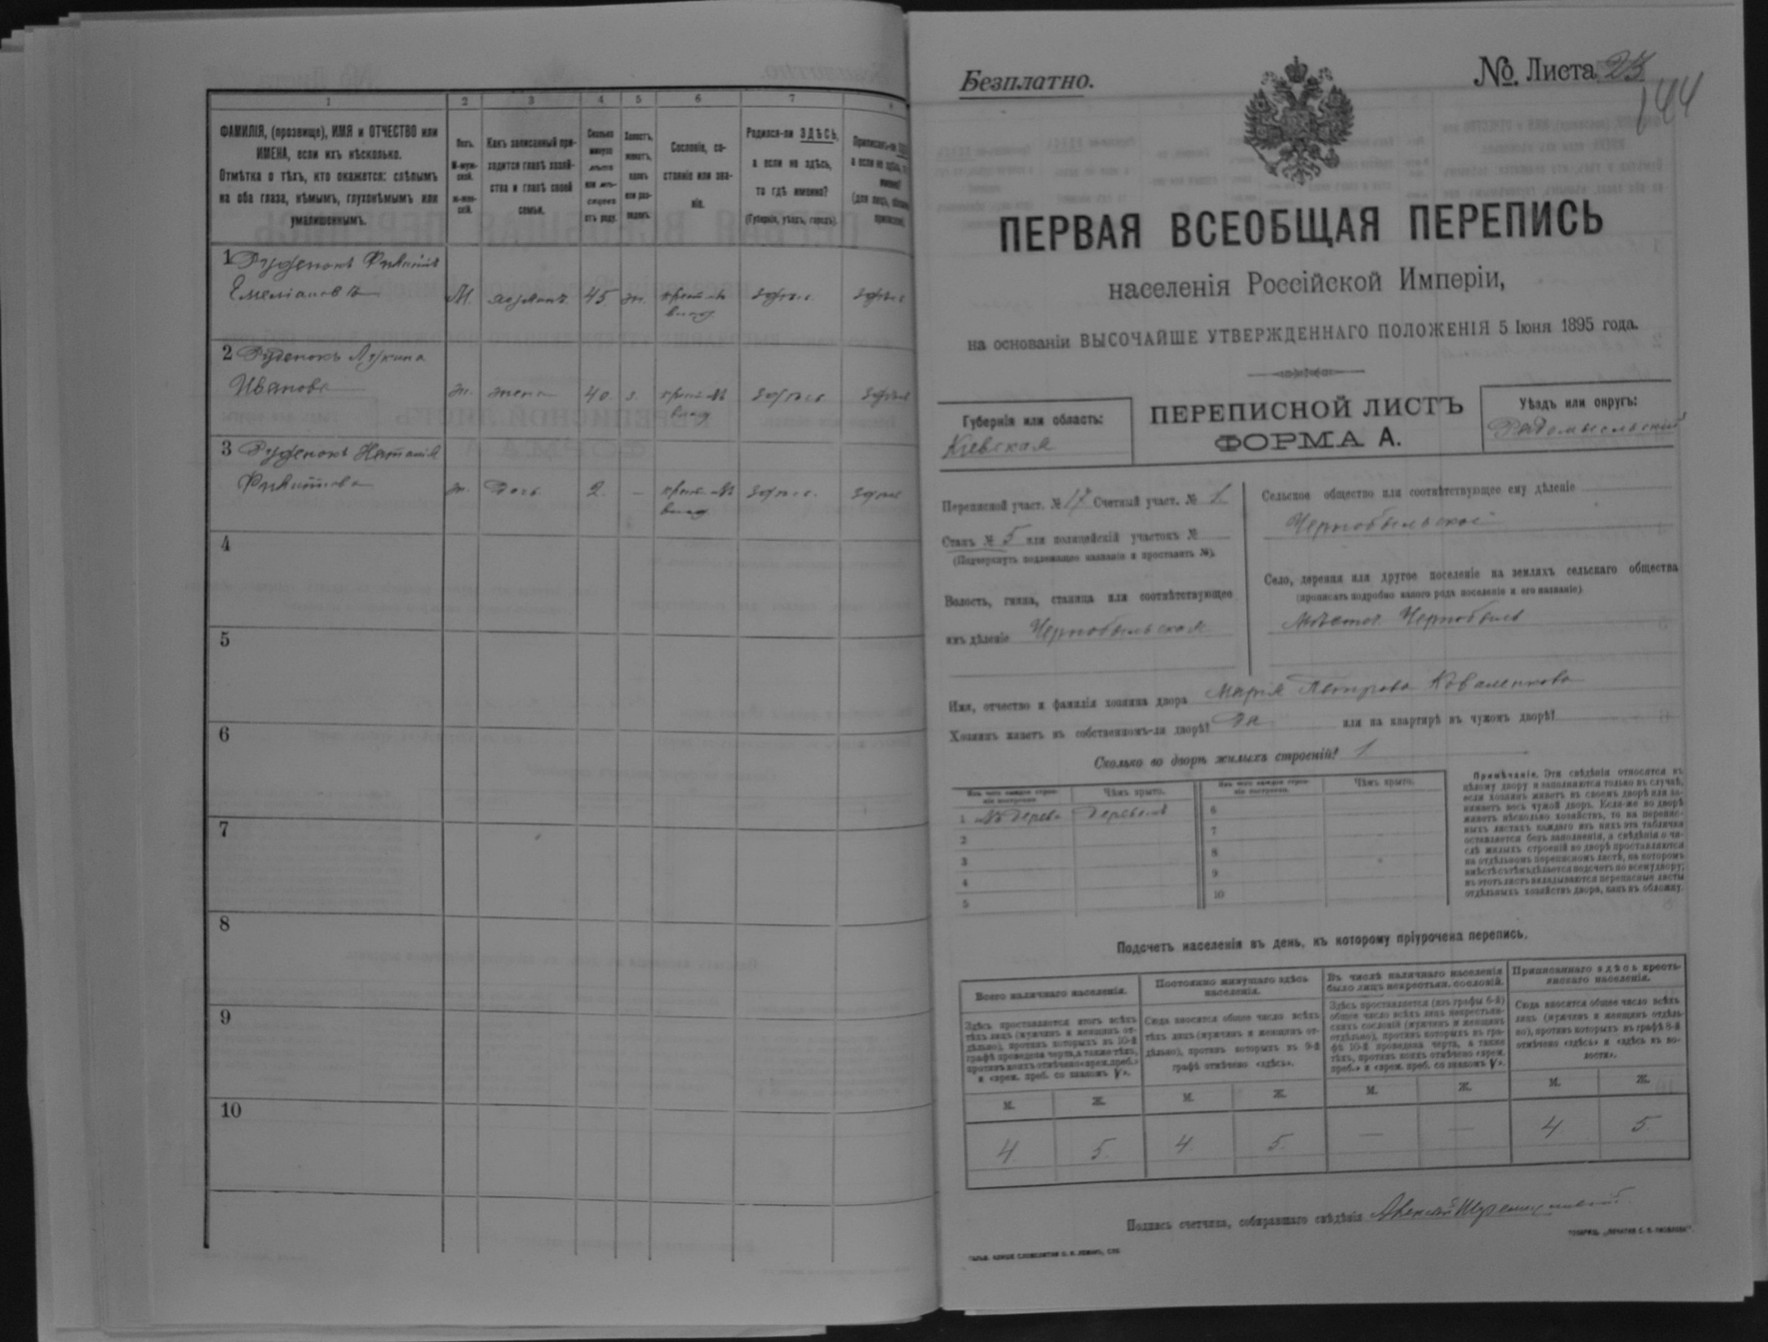 1 2 3 4 5 6 7 8
ФАМИЛІЯ, (прозвище), ИМЯ и ОТЧЕСТВО или
ИМЕНА, если ихъ нѣсколько.
Отмѣтка о тѣхъ, кто окажется: слѣпымъ
на оба глаза, нѣмымъ, глухонѣмымъ или
умалишеннымъ.
Полъ.
М-муж-
ской.
ж-жен-
скій.
Какъ записанный при-
ходится главѣ хозяй-
ства и главѣ своей
семьи.
Сколько
минуло
лѣтъ
или мѣ-
сяцевъ
отъ роду.
Холостъ,
женатъ,
вдовъ
или раз-
веденъ.
Сословіе, со-
стояніе или зва-
ніе.
Родился-ли ЗДѢСЬ,
а если не здѣсь,
то гдѣ именно?
(Губернія, уѣздъ, городъ).
Приписанъ-ли
а если не здѣсь,
1
Емеліановъ
М. 45 ж.
2
Иванова
ж. жена 40 з.
3
ж. дочь 2. —
4
5
6
7
8
9
10
Безплатно.
№ Листа
144
ПЕРВАЯ ВСЕОБЩАЯ ПЕРЕПИСЬ
населенія Россійской Имперіи,
на основаніи ВЫСОЧАЙШЕ УТВЕРЖДЕННАГО ПОЛОЖЕНІЯ 5 Іюня 1895 года.
Губернія или область:
Кіевская
ПЕРЕПИСНОЙ ЛИСТЪ
ФОРМА А.
Уѣздъ или округъ:
Радомысльскій
Переписной участ. № 17 Счетный участ. № 1
Станъ № 5 или полицейскій участокъ №
(Подчеркнуть подлежащее названіе и проставить №).
Волость, гмина, станица или соотвѣтствующее
имъ дѣленіе Чернобыльская
Сельское общество или соотвѣтствующее ему дѣленіе
Чернобыльское
Село, деревня или другое поселеніе на земляхъ сельскаго общества
(прописать подробно какого рода поселеніе и его названіе)
Мѣстеч. Чернобыль
Имя, отчество и фамилія хозяина двора Марія Петрова Коваленкова
Хозяинъ живетъ въ собственномъ-ли дворѣ? Да или на квартирѣ въ чужомъ дворѣ?
Сколько во дворѣ жилыхъ строеній? 1
Изъ чего каждое строе-
ніе построено.
Чѣмъ крыто.
Изъ чего каждое строе-
ніе построено.
Чѣмъ крыто.
1 Дерева Деревомъ 6
2 7
3 8
4 9
5 10
Примѣчаніе. Эти свѣдѣнія относятся къ
цѣлому двору и заполняются только въ случаѣ,
если хозяинъ живетъ въ своемъ дворѣ или за-
нимаетъ весь чужой дворъ. Если-же во дворѣ
живетъ нѣсколько хозяйствъ, то на перепис-
ныхъ листахъ каждаго изъ нихъ эта табличка
оставляется безъ заполненія, а свѣдѣнія о чи-
слѣ жилыхъ строеній во дворѣ проставляются
на отдѣльномъ переписномъ листѣ, на которомъ
вмѣстѣ съ тѣмъ дѣлается подсчетъ по всему двору;
въ этотъ листъ вкладываются переписные листы
отдѣльныхъ хозяйствъ двора, какъ въ обложку.
Подсчетъ населенія въ день, къ которому пріурочена перепись.
Всего наличнаго населенія.
Постоянно живущаго здѣсь
населенія.
Въ числѣ наличнаго населенія
было лицъ некрестьян. сословій.
Приписаннаго здѣсь кресть-
янскаго населенія.
Здѣсь проставляется итогъ всѣхъ
тѣхъ лицъ (мужчинъ и женщинъ от-
дѣльно), противъ которыхъ въ 10-й
графѣ проведена черта, а также тѣхъ,
противъ коихъ отмѣчено «врем. преб.»
и «врем. преб. со знакомъ V».
Сюда вносится общее число всѣхъ
тѣхъ лицъ (мужчинъ и женщинъ от-
дѣльно), противъ которыхъ въ 9-й
графѣ отмѣчено «здѣсь».
Здѣсь проставляется (изъ графы 6-й)
общее число всѣхъ лицъ некрестьян-
скихъ сословій (мужчинъ и женщинъ
отдѣльно), противъ которыхъ въ гра-
фѣ 10-й проведена черта, а также
тѣхъ, противъ коихъ отмѣчено «врем.
преб.» и «врем. преб. со знакомъ V».
Сюда вносится общее число всѣхъ
лицъ (мужчинъ и женщинъ отдѣль-
но), противъ которыхъ въ графѣ 8-й
отмѣчено «здѣсь» и «здѣсь въ во-
лости».
М. Ж. М. Ж. М. Ж. М. Ж.
4 5 4 5 — — 4 5
Подпись счетчика, собиравшаго свѣдѣнія